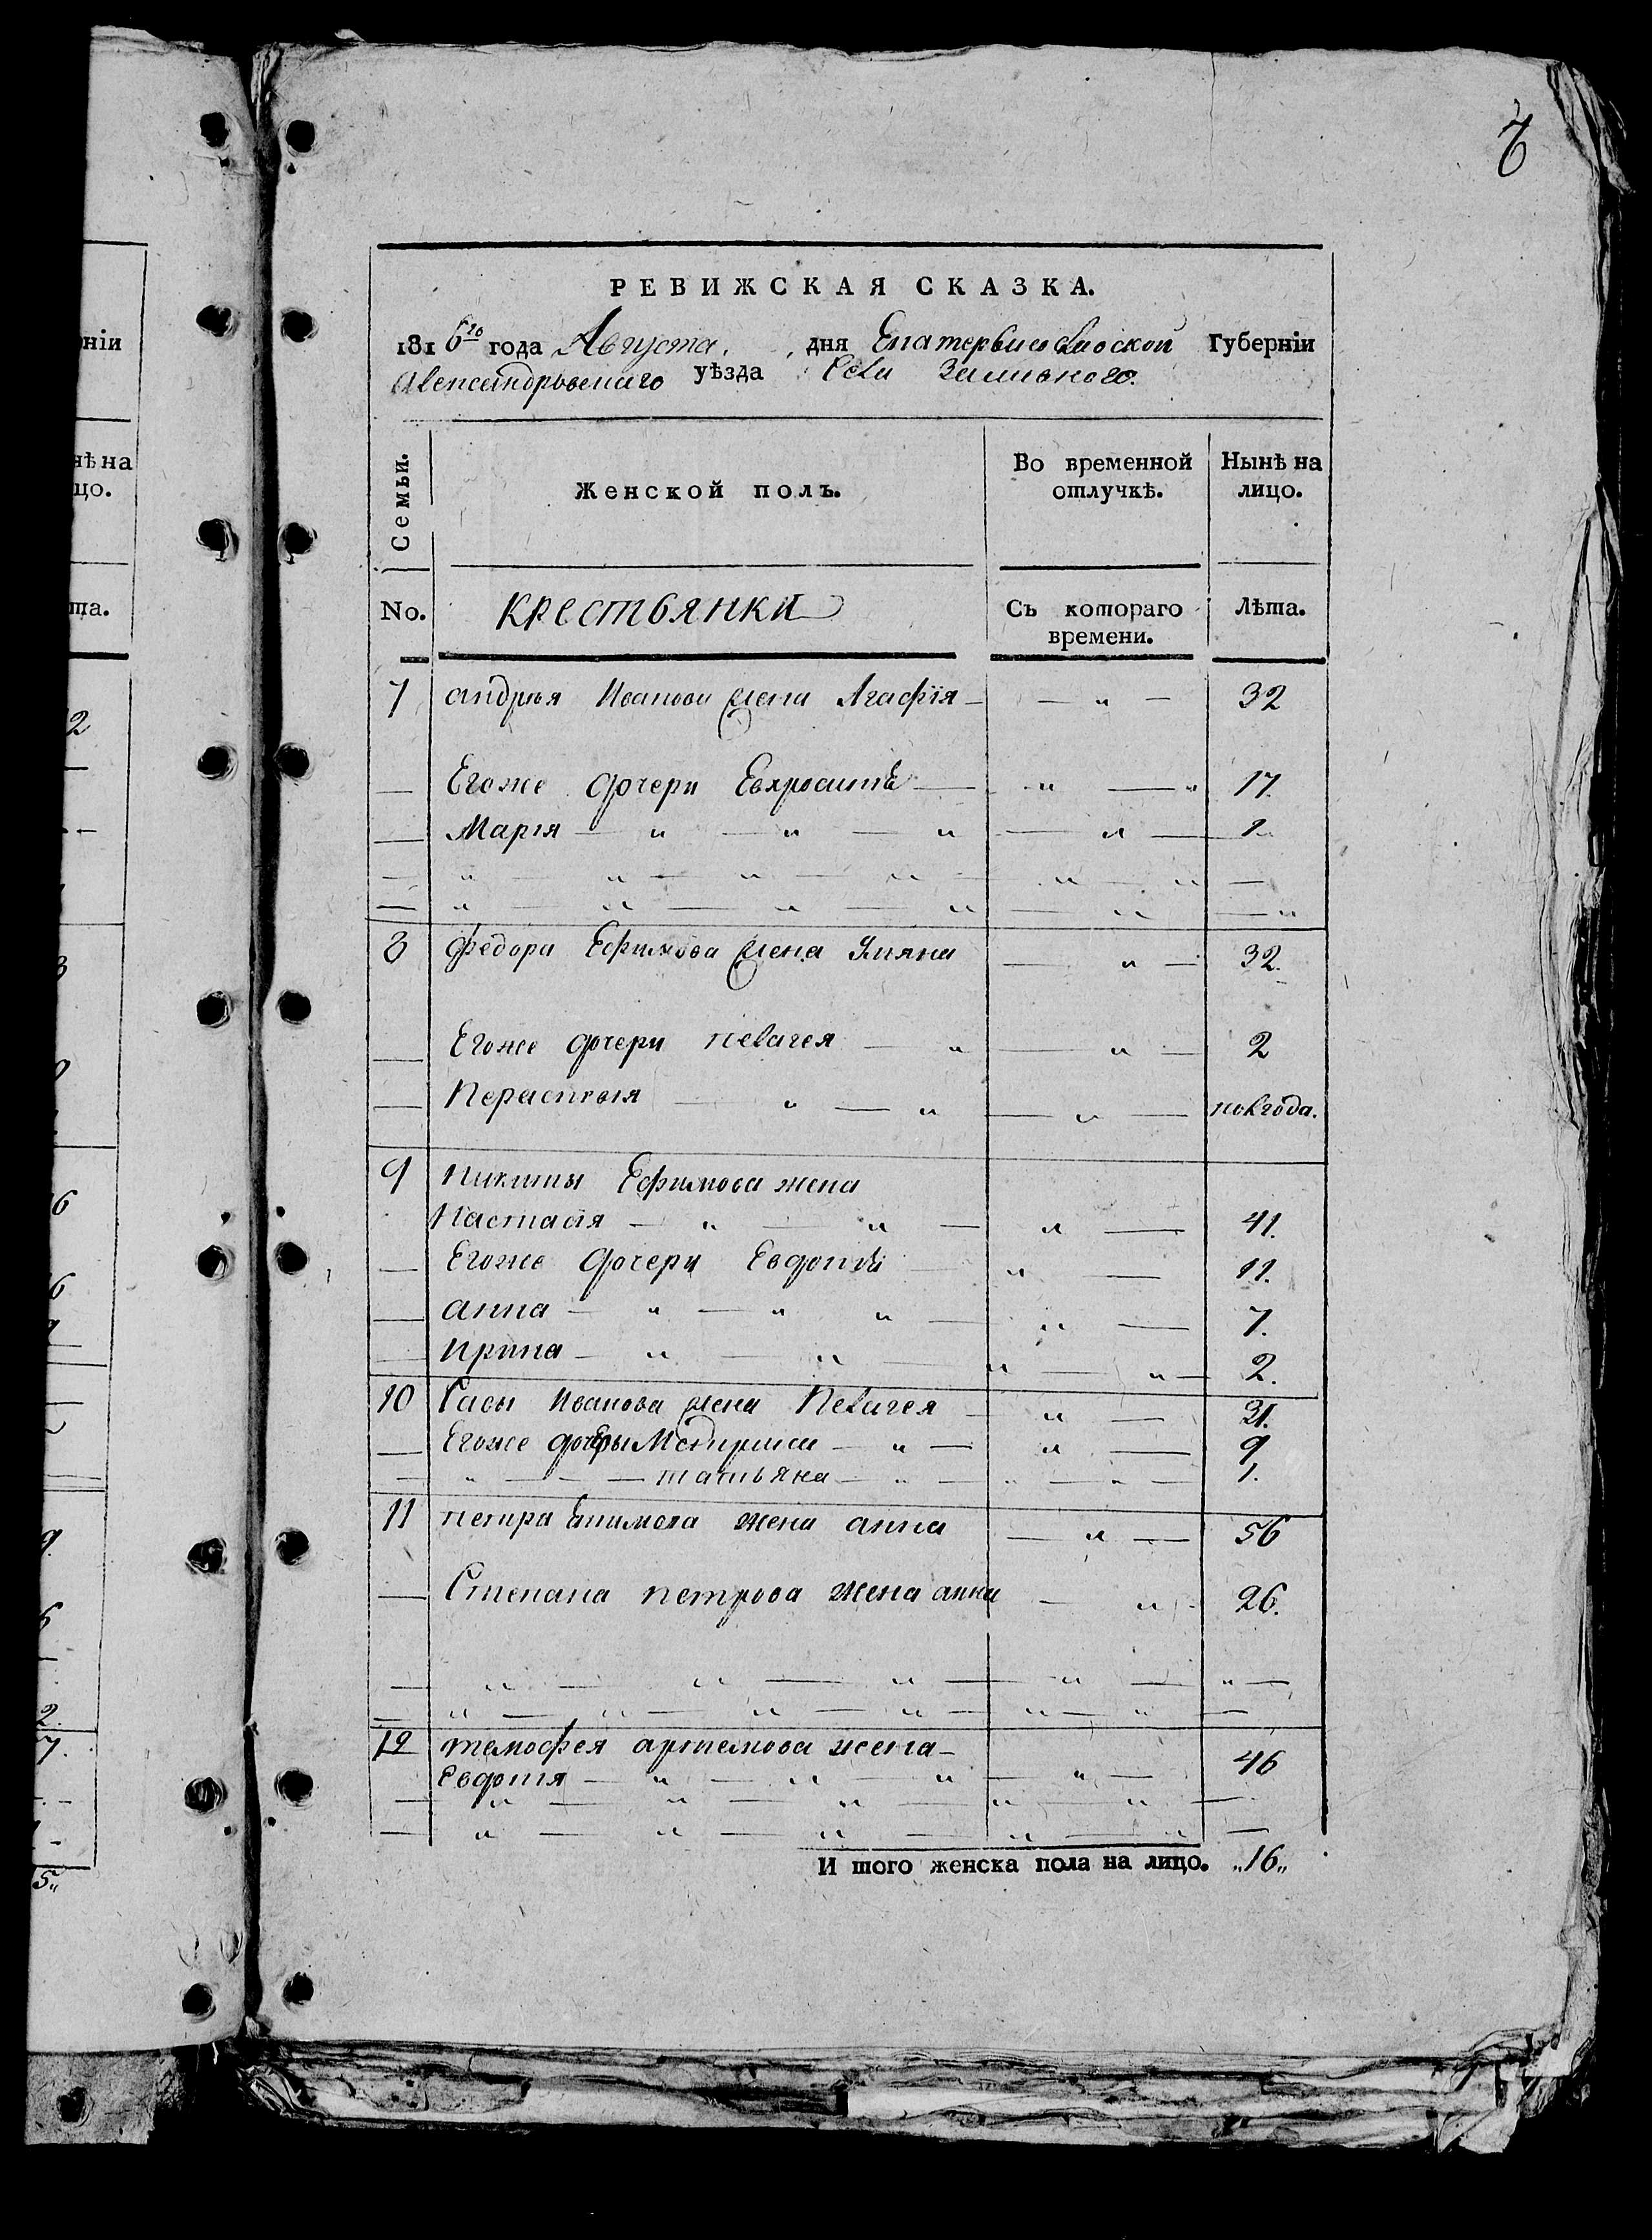 нiи
нѣ на
цо.
та.
7
РЕВИЖСКАЯ СКАЗКА.
1816го года Августа, дня Екатеринославской Губернiи
Александровскаго уѣзда Села
Семьи.
Женской полъ.
Во временной отлучкѣ.
Нынѣ на лицо.
No.
крестьянки
Съ котораго времени.
Лѣта.
7 андрея Иванова жена Агафiя — — „ — 32
— Егоже дочери — „ — „ 17.
— Марiя — „ — „ — „ — „ — 1
— „ — „ — „ — „ — „ — „ —
— „ — „ — „ — „ — „ — „
8 федора Ефимова жена — „ — 32.
— Егоже дочери пелагея — „ — „ — 2
— „ — „ — „ — полгода.
9 Никиты Ефимова жена
Настасiя — „ — „ — „ — 41.
— Егоже дочери — „ — 11.
— анна — „ — „ „ — „ — 7.
— Ирина — „ — „ — „ — „ — 2.
10 Савы Иванова жена Пелагея — „ — 31.
— Егоже дочеры — „ — „ — 9
— „ — — — татьяна — „ — „ — „ — 1.
11 петра жена анна — „ — 56
— Степана петрова жена анна — „ 26.
— „ — „ — „ — „ — „ —
— „ — „ — „ — „ — „ — „ —
12 темофея артемова жена — 46
Евдотiя — „ — „ — „ — „ —
— „ — „ — „ — „ — „ —
— „ — „ — „ — „ — „ —
И того женска пола на лицо. „16„